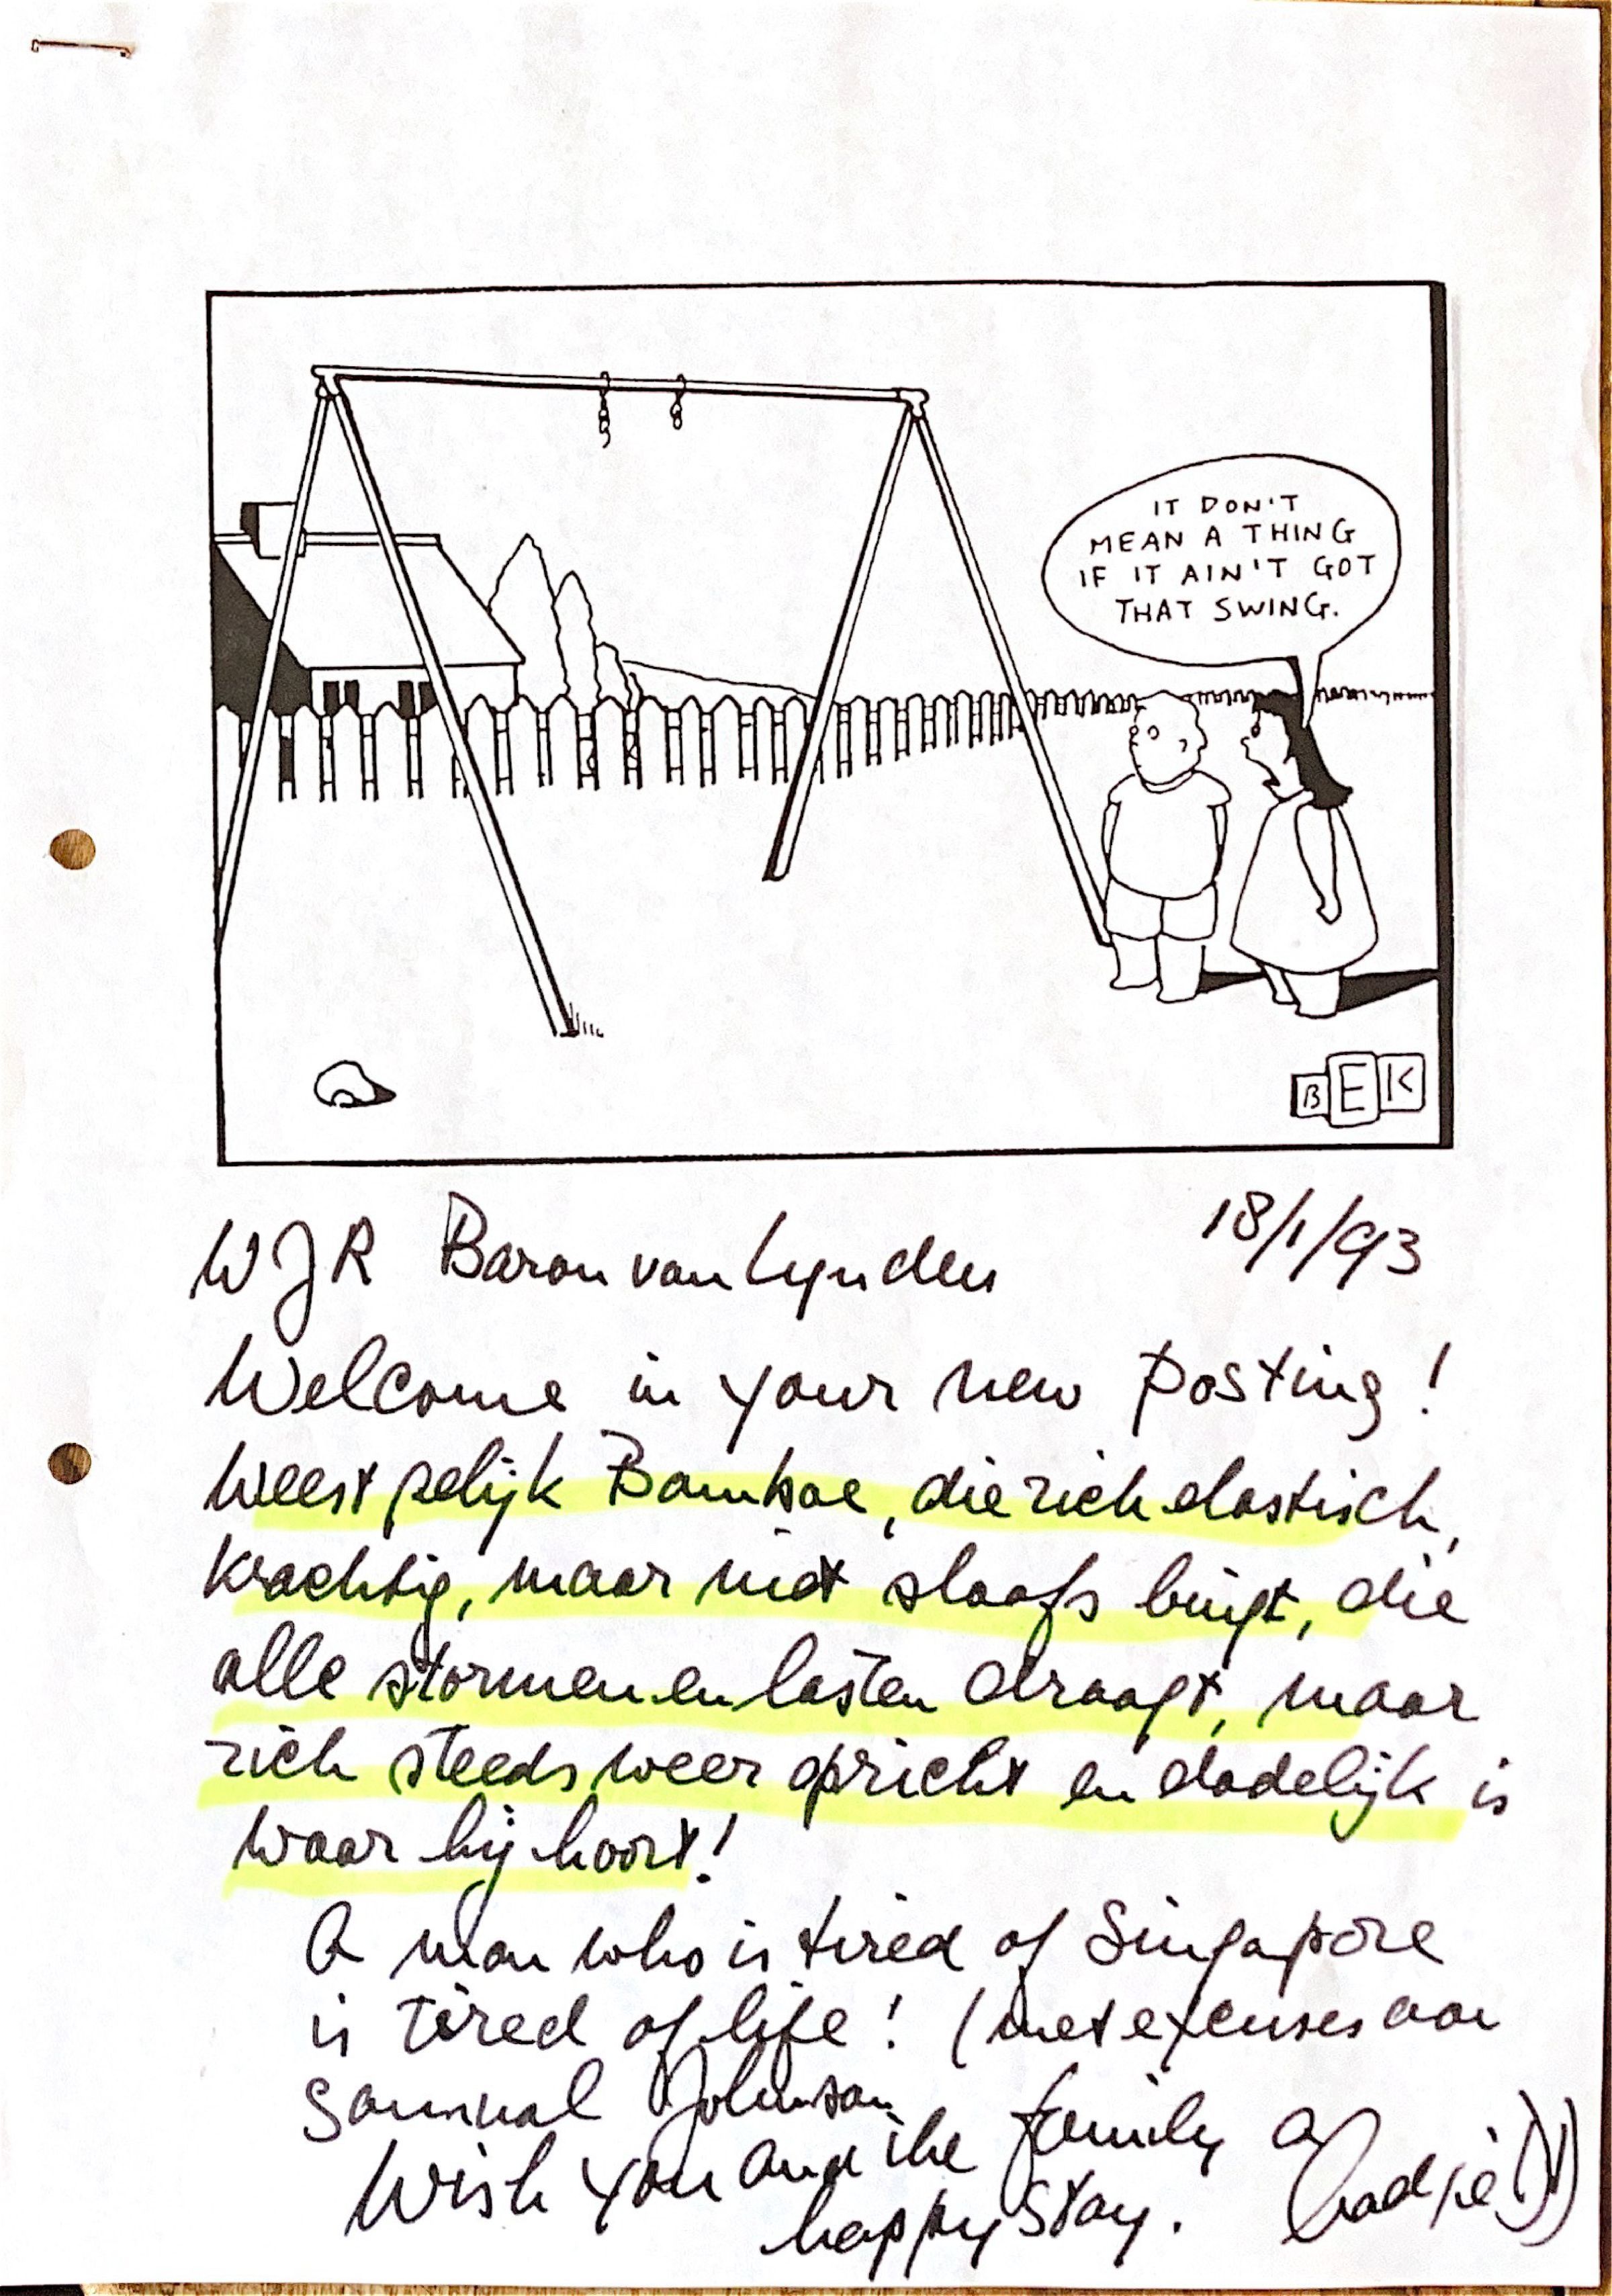 IT DON'T
MEAN A THING
IF IT AIN'T GOT
THAT SWING.
BEK
18/1/93
WJR Baron van Lynden
Welcome in your new posting!
Weest gelijk Bamboe, die zich elastisch,
krachtig, maar niet slaafs buigt, die
alle stormen en lasten draagt, maar
zich steeds weer opricht en dodelijk is
waar hij hoort!
A man who is tired of Singapore
is tired of life! (met excuses aan
Samual Johnson
Wish you and the family a
happy stay.